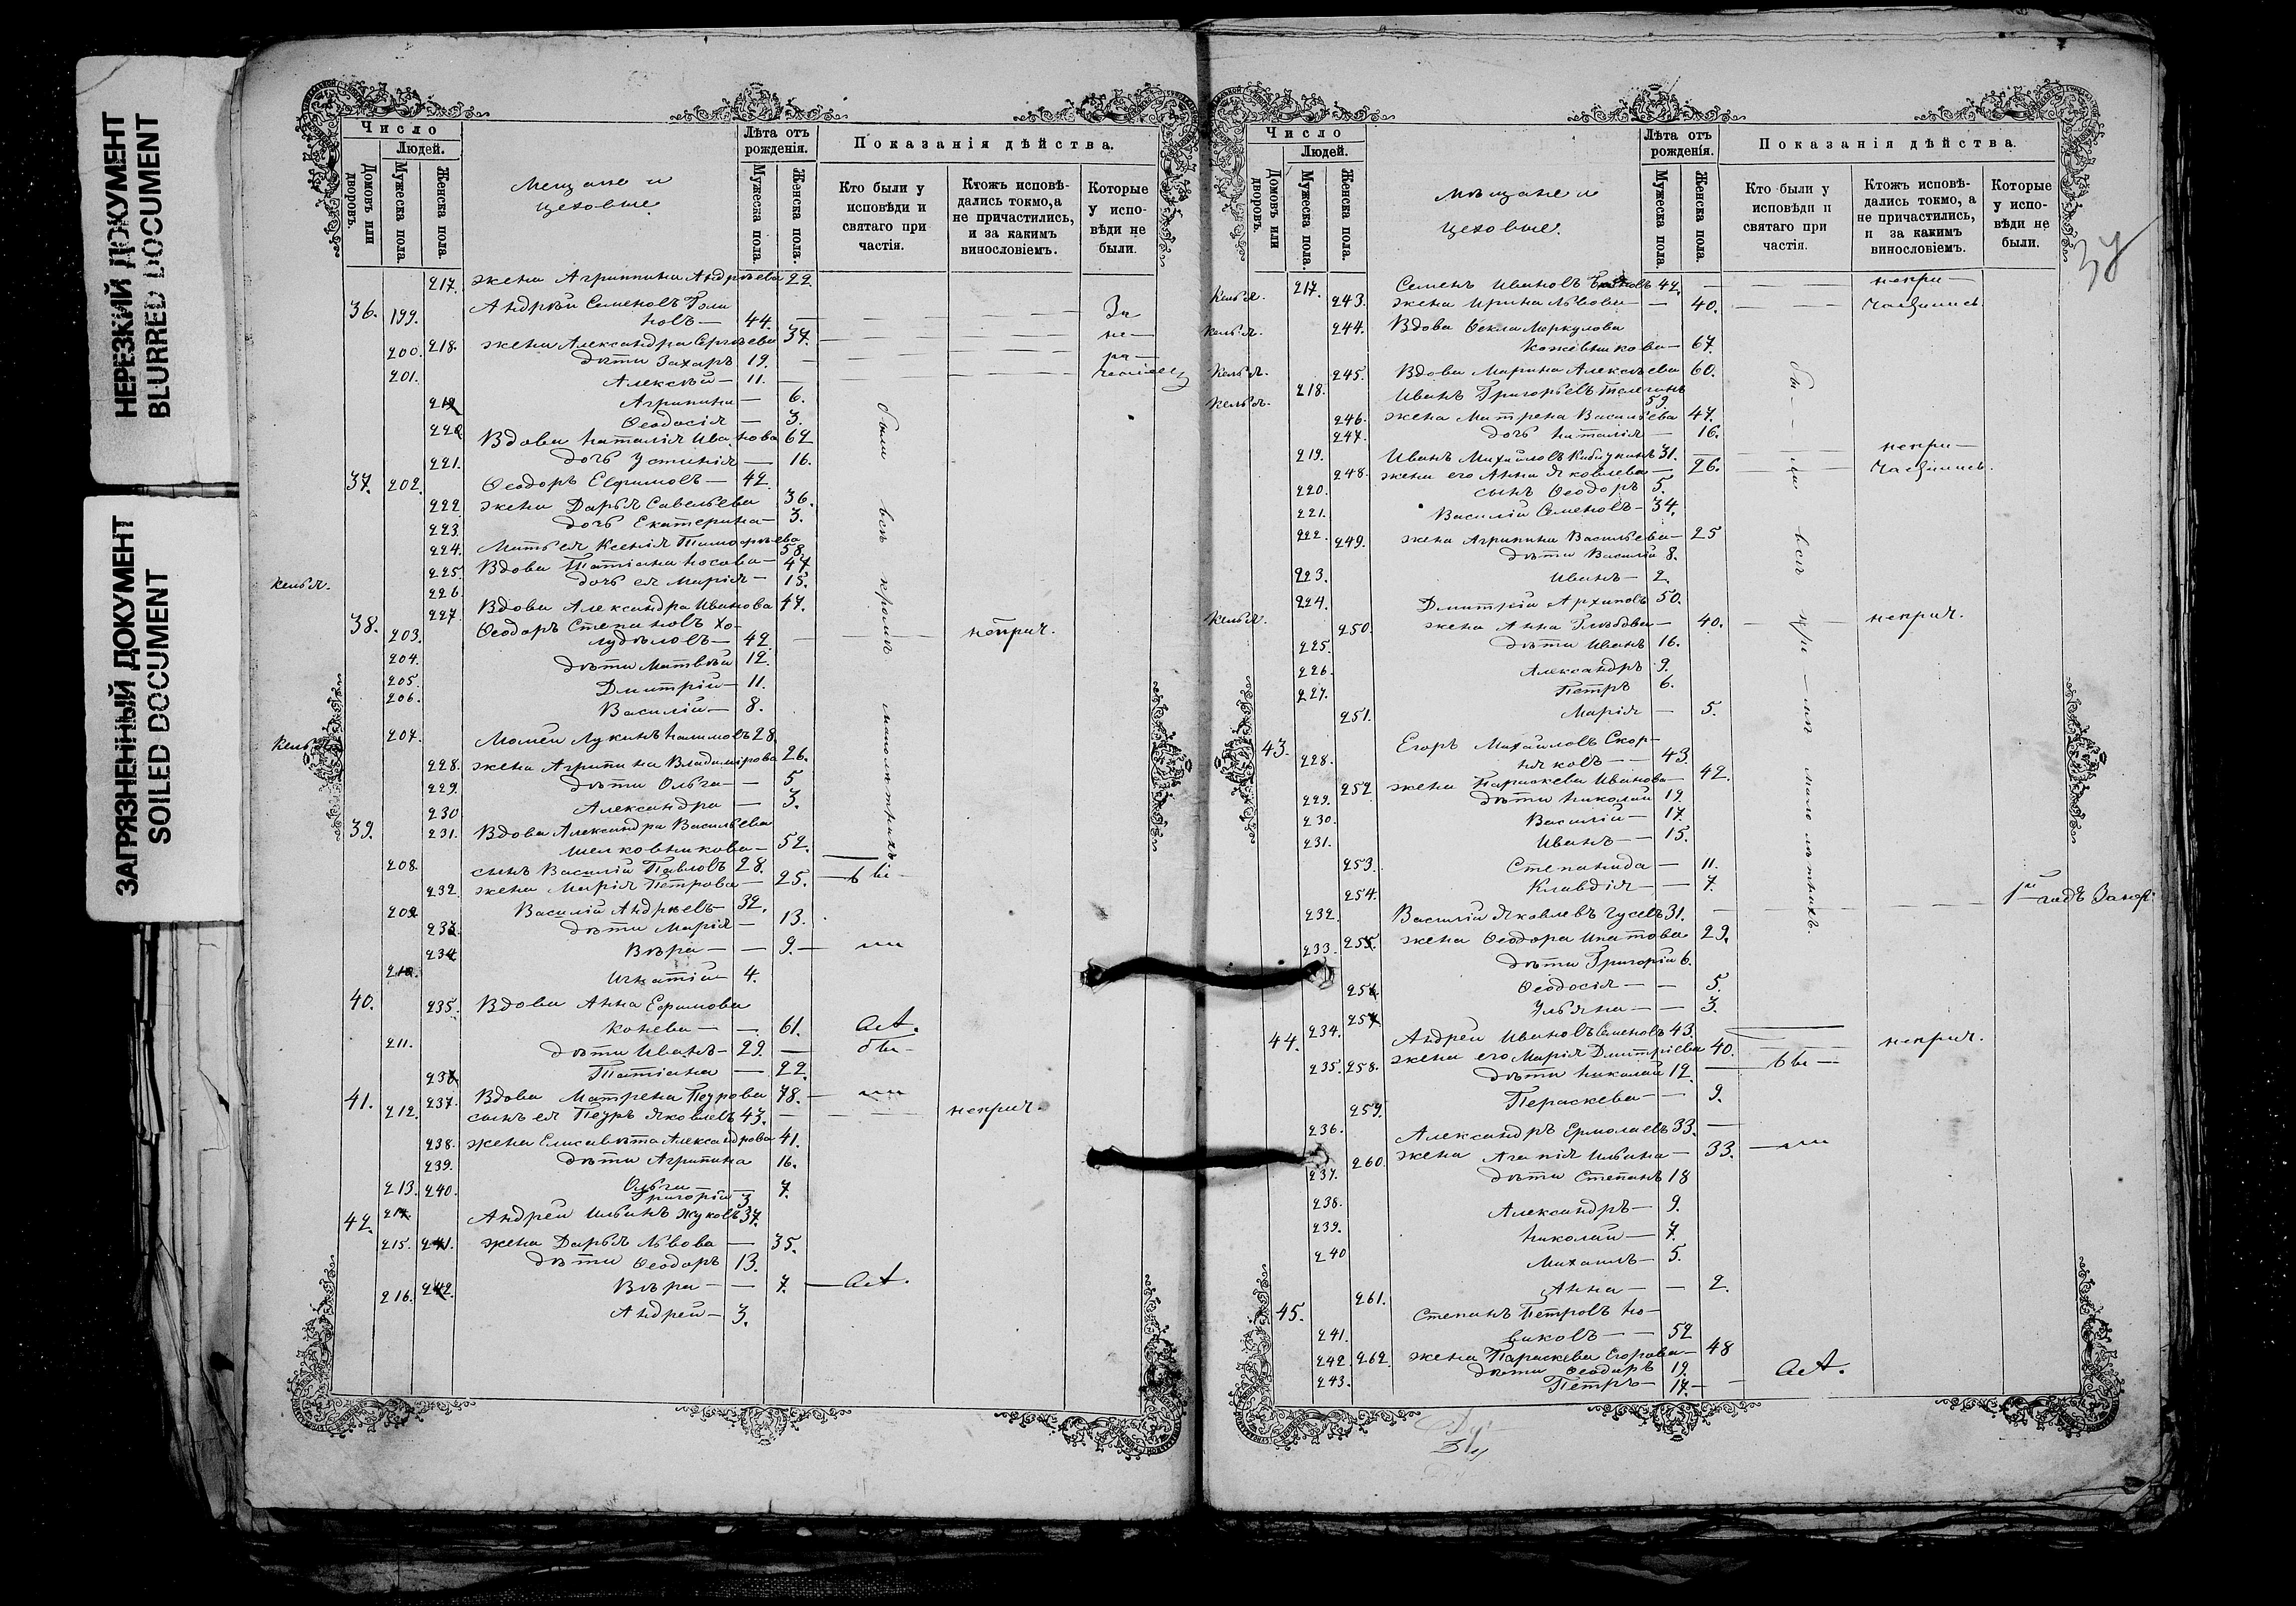 НЕРЕЗКИЙ ДОКУМЕНТ
BLURRED DOCUMENT
ЗАГРЯЗНЕННЫЙ ДОКУМЕНТ
SOILED DOCUMENT
Число
Людей.
Домовъ или дворовъ.
Мужеска пола.
Женска пола.
Мещане и
цеховые
Лѣта отъ рожденія.
Мужеска пола.
Женска пола.
Показанія дѣйства.
Кто были у исповѣди и святаго при частія.
Ктожъ исповѣ-дались токмо, а не причастились, и за какимъ винословіемъ.
Которые у испо-вѣди не были.
217. жена Агриппина Андреева 22
36. 199. Андрей Семеновъ
новъ — 44. — За
200. 218. жена Александра Сергѣева 37. не—
дѣти Захаръ 19. — ра—
201. Алексѣй — 11.
219 Агрипина — 6.
220 Ѳеодосія — 3.
Вдова Наталія Иванова 62
221. дочь Устинія — 16.
37. 202. Ѳеодоръ Ефимовъ — 42.
222. жена Дарья Савельева 36.
223. дочь Екатерина — 3.
224. Мать ея Ксенія Тимофѣева 58.
225. Вдова Татіана Носова — 47.
226. дочь ея Марія — 15.
келья.
227. Вдова Александра Иванова 47.
38. 203. Ѳеодоръ Степановъ Хо-
лудѣловъ — 42. — неприч.
204. дѣти Матвѣй 12.
205. Дмитрій — 11.
206. Василій — 8.
келья
207. Моисей Лукинъ Налимовъ 28.
228. жена Агрипина Владимірова 26.
229. дѣти Ольга — 5
230 Александра — 3.
39. 231. Вдова Александра Васильева
Шелковникова — 52.
208. сынъ Василій Павловъ 28.
232. жена Марія Петрова — 25. — бы —
209 Василій Андреевъ 32.
233. дѣти Марія — 13.
234 Вѣра — — 9. — ли
210. Игнатій — 4.
40. 235. Вдова Анна Ефимова
Конева — — 61.
211. дѣти Иванъ — 29. — бы —
236 Татіана — 22.
41. 237. Вдова Матрена Петрова 78. — ли
212. сынъ ея Петръ Яковлевъ 43. — неприч.
238. жена Елисавета Александрова 41.
239. дѣти Агрипина 16.
213. 240. Ольга — — 7.
Григорій 3
42. 214. Андрей Ильинъ Жуковъ 37.
215. 241. жена Дарья Львова — 35.
дѣти Ѳеодоръ 13.
216. 242. Вѣра — — 7.
Андрей — 3.
были всѣ кромѣ малолѣтнихъ
Число
Людей.
Домовъ или дворовъ.
Мужеска пола.
Женска пола.
Мѣщане и
цеховые.
Лѣта отъ рожденія.
Мужеска пола.
Женска пола.
Показанія дѣйства.
Кто были у исповѣди и святаго при частія.
Ктожъ исповѣ-дались токмо, а не причастились, и за какимъ винословіемъ.
Которые у испо-вѣди не были.
келья. 217. Семенъ Ивановъ 42. — непри—
243. жена Ирина Львова — 40. — частились
келья. 244. Вдова Ѳекла Меркулова
Кожевникова — 67.
келья. 245. Вдова Марина Алексѣева 60.
келья. 218. Иванъ Григорьевъ Телегинъ
59.
246. жена Матрена Васильева 47.
247. дочь Наталія — 16.
219. Иванъ Михайловъ 31. — непри—
248. жена его Анна Яковлева — 26. — частились.
220. сынъ Ѳеодоръ 5.
221. Василій Семеновъ — 34.
222. 249. жена Агрипина Васильева — 25
дѣти Василій 8.
223. Иванъ — 2.
224. Дмитрій Архиповъ 50.
келья. 250. жена Анна Глѣбова — 40. — неприч.
225. дѣти Иванъ 16.
226. Александръ 9.
227. Петръ 6.
251. Марія — 5.
43. 228. Егоръ Михайловъ Скор-
няковъ — — 43
252 жена Параскева Иванова — 42.
229. дѣти Николай 19
230. Василій — 17.
231. Иванъ — 15.
253. Степанида — 11.
254. Клавдія — — 7
232. Василій Яковлевъ Гусевъ 31. —
233 255. жена Ѳеодора Ипатова 29.
дѣти Григорій 6.
256. Ѳеодосія — — 5.
257 Ульяна — — 3.
44. 234. Андрей Ивановъ Семеновъ 43. неприч.
235. 258. жена его Марія Дмитріева 40.
дѣти Николай 12. — бы —
259. Параскева — — 9.
236. Александръ Ермолаевъ 33. —
260. жена Агапія Ильина — 33. — ли
237. дѣти Степанъ 18
238. Александръ — 9.
239. Николай — 7.
240 Михаилъ — 5.
261. Анна — — 2.
45. Степанъ Петровъ Но-
241. виковъ — — 52
242. 262. жена Параскева Егорова — 48
дѣти Ѳеодоръ 19.
243. Петръ — 17. —